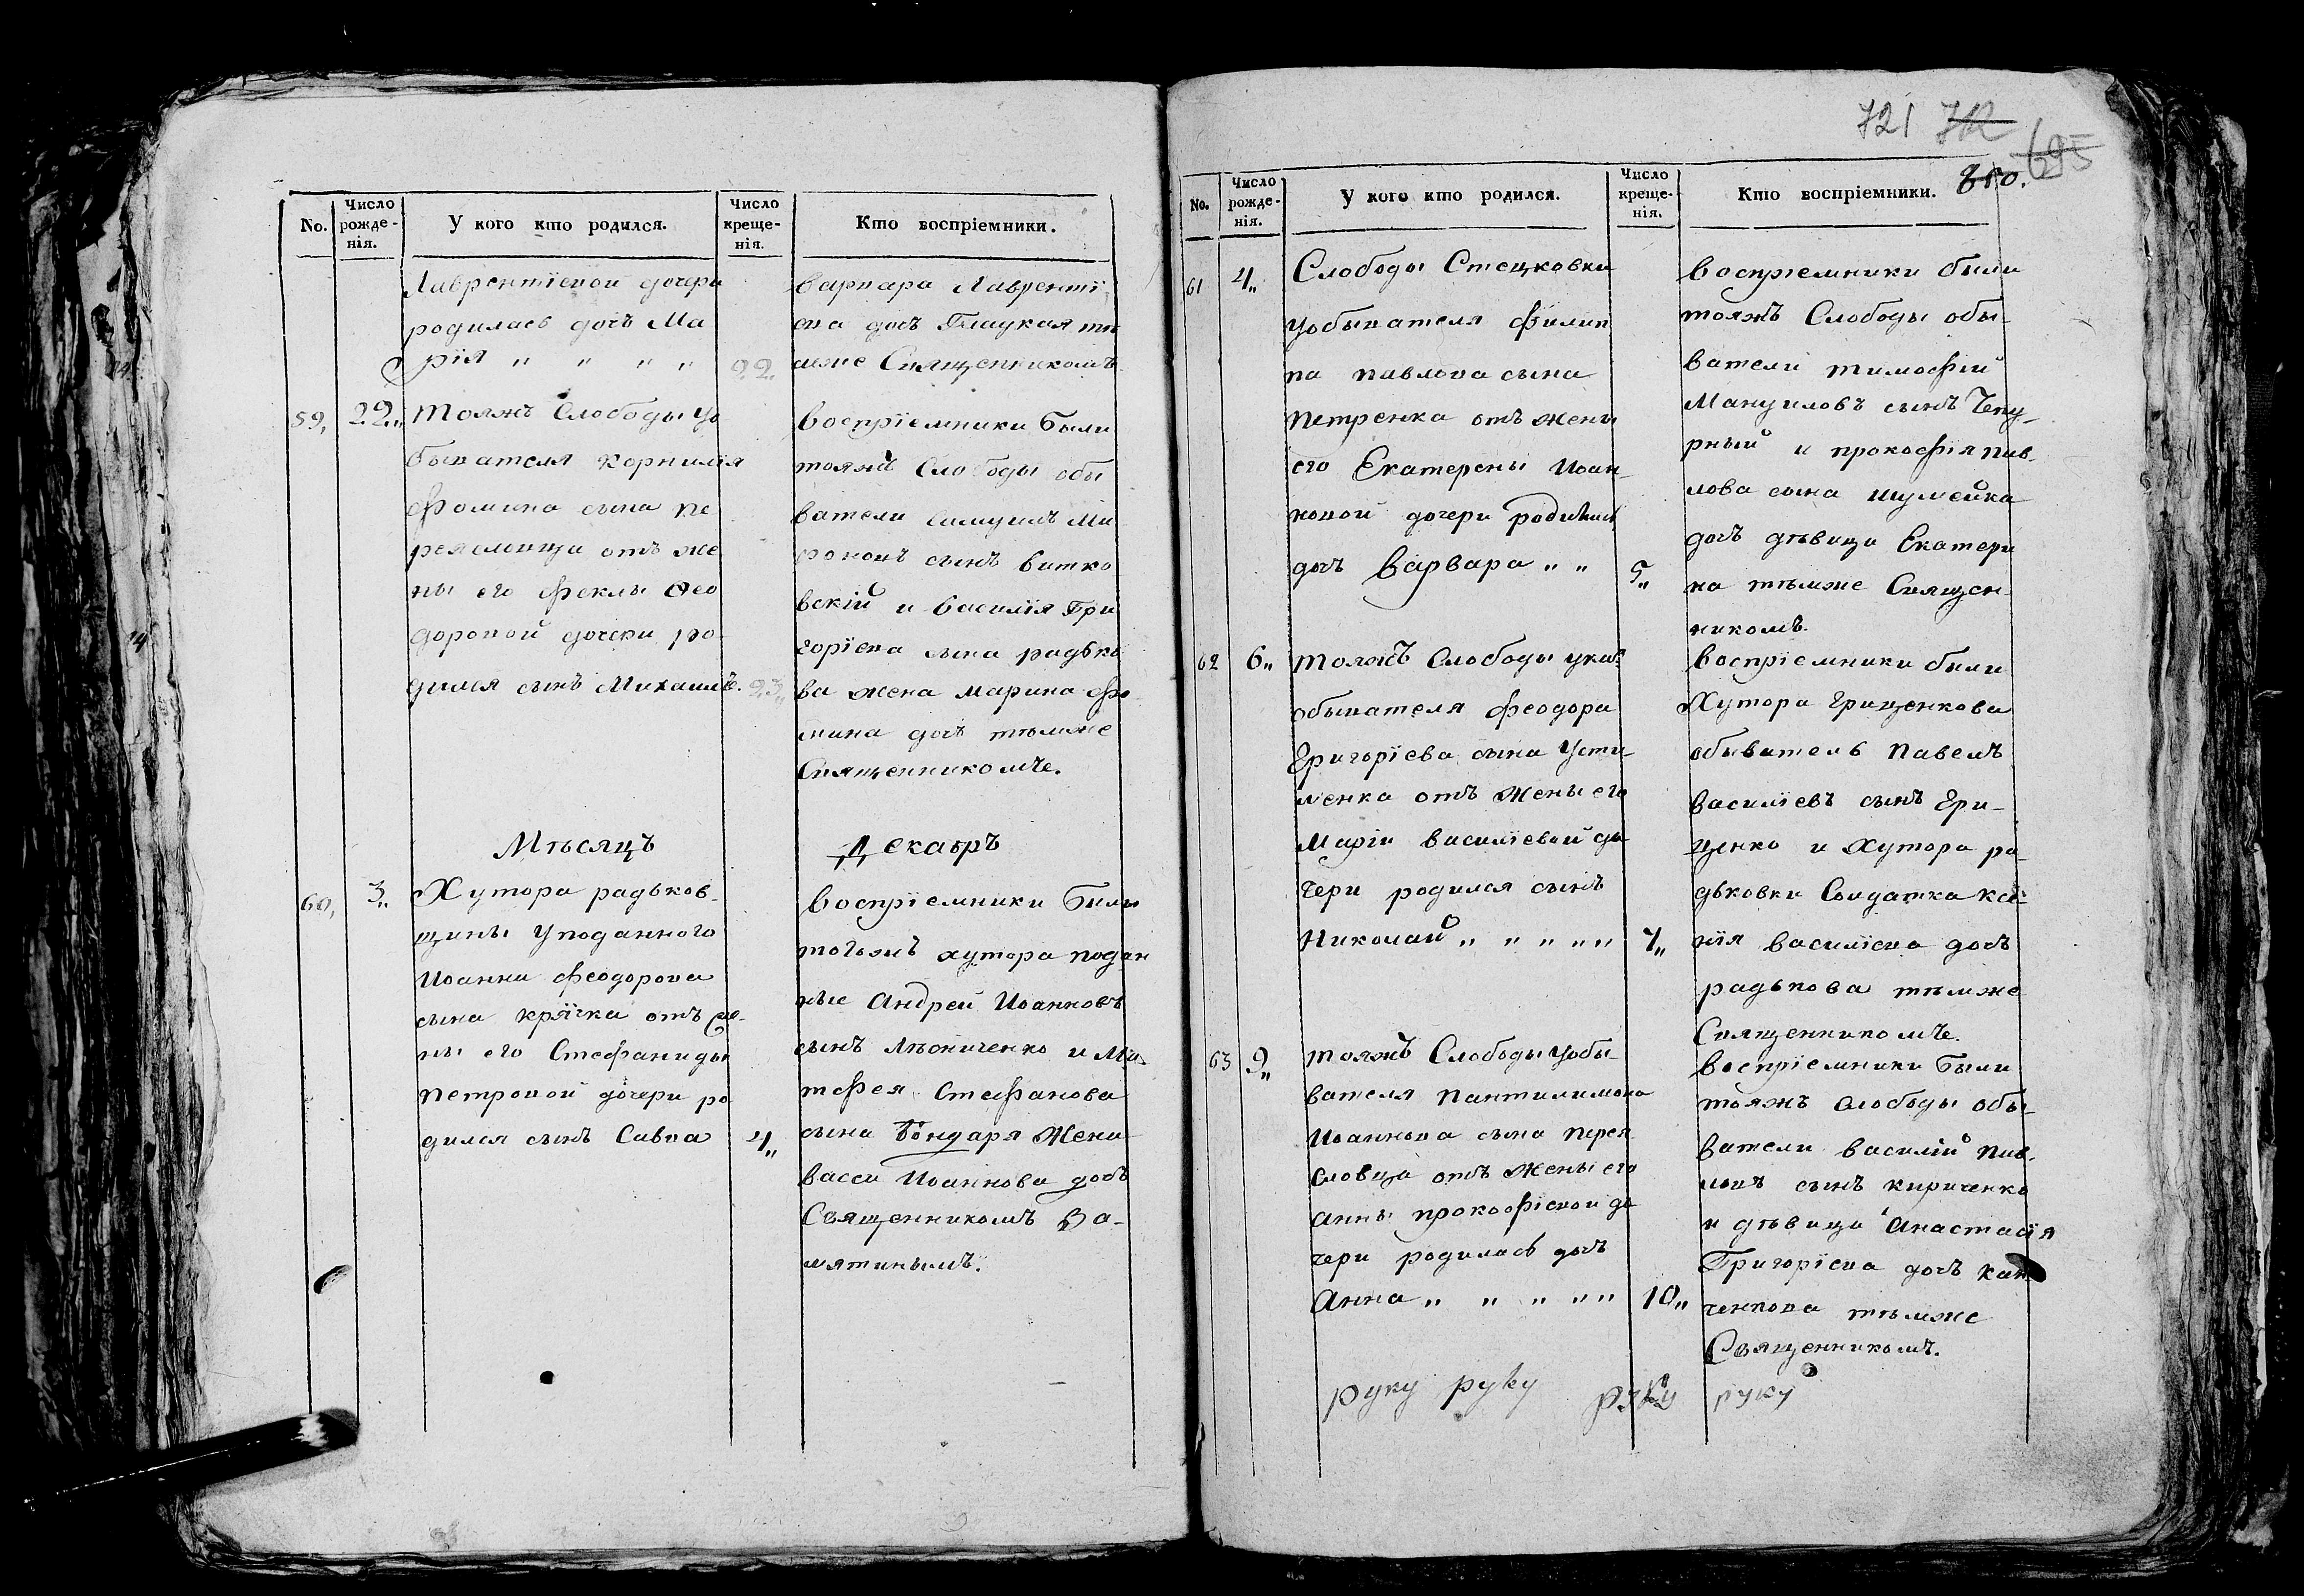 No.
Число рожде-нія.
У кого кто родился.
Число креще-нія.
Кто воспріемники.
Лаврентіевой дочери
родилась дочь Ма
рія " " " "
22.
варвара Лавренті
ева дочь Глацкая тѣ
мже Священникомъ.
59,
22"
тояжъ Слободы уо
бывателя Корнилія
Фомина сына пе
реясловца отъ же
ны его Феклы Ѳео
доровой дочери ро-
дился сынъ Михаилъ.
23"
воспріемники были
тояжъ Слободы обы
ватели Самуилъ Ми
роновъ сынъ витко
вскій и Василія Гри
горіева сына радько
ва жена Марина Фо-
мина дочь тѣмже
Священникомъ.
Мѣсяцъ
Декабръ
60,
3"
Хутора радьков-
щины уподанного
Иоанна Феодорова
сына крячка отъ же-
ны его Стефаниды
петровой дочери ро
дился сынъ Савва
4"
воспріемники были
тогожъ хутора подан
ные Андрей Иоанновъ
сынъ и Ма
тфея Стефанова
сына Бондаря Жена
васса Иоаннова дочь
Священникомъ За-
мятинымъ.
721 712
695
850.
No.
Число рожде-нія.
У кого кто родился.
Число креще-нія.
Кто воспріемники.
61
4"
Слободы Стецковки
уобывателя Филип
па павлова сына
петренка отъ жены
его Екатерены Иоан-
новой дочери родилась
дочь Варвара " "
5"
воспріемники были
тояжъ Слободы обы-
ватели тимофій
Мануиловъ сынъ Чепу-
рный и прокофія пав-
лова сына шумейка
дочь дѣвица Екатери
на тѣмже Священ-
никомъ.
62
6"
тояжъ Слободы
обывателя Феодора
Григоріева сына Усти-
менка отъ жены его
Маріи василіевой до-
чери родился сынъ
Николай " " " " "
7"
воспріемники были
Хутора Грищенкова
обыватель Павелъ
василіевъ сынъ Гри-
щенко и Хутора ра-
дьковки Солдатка Ксе-
нія василіева дочь
радькова тѣмже
Священникомъ.
63
9"
тояжъ Слободы уобы-
вателя пантилимона
Иоаннова сына перея
словца отъ жены его
анны прокофіевой до
чери родилась дочь
анна " " " " "
10"
воспріемники были
тояжъ слободы обы-
ватели василій пав-
ловъ сынъ кириченко
и дѣвица Анастасія
Григоріева дочь
ченкова тѣмже
Священникомъ.
руку руку руку руку